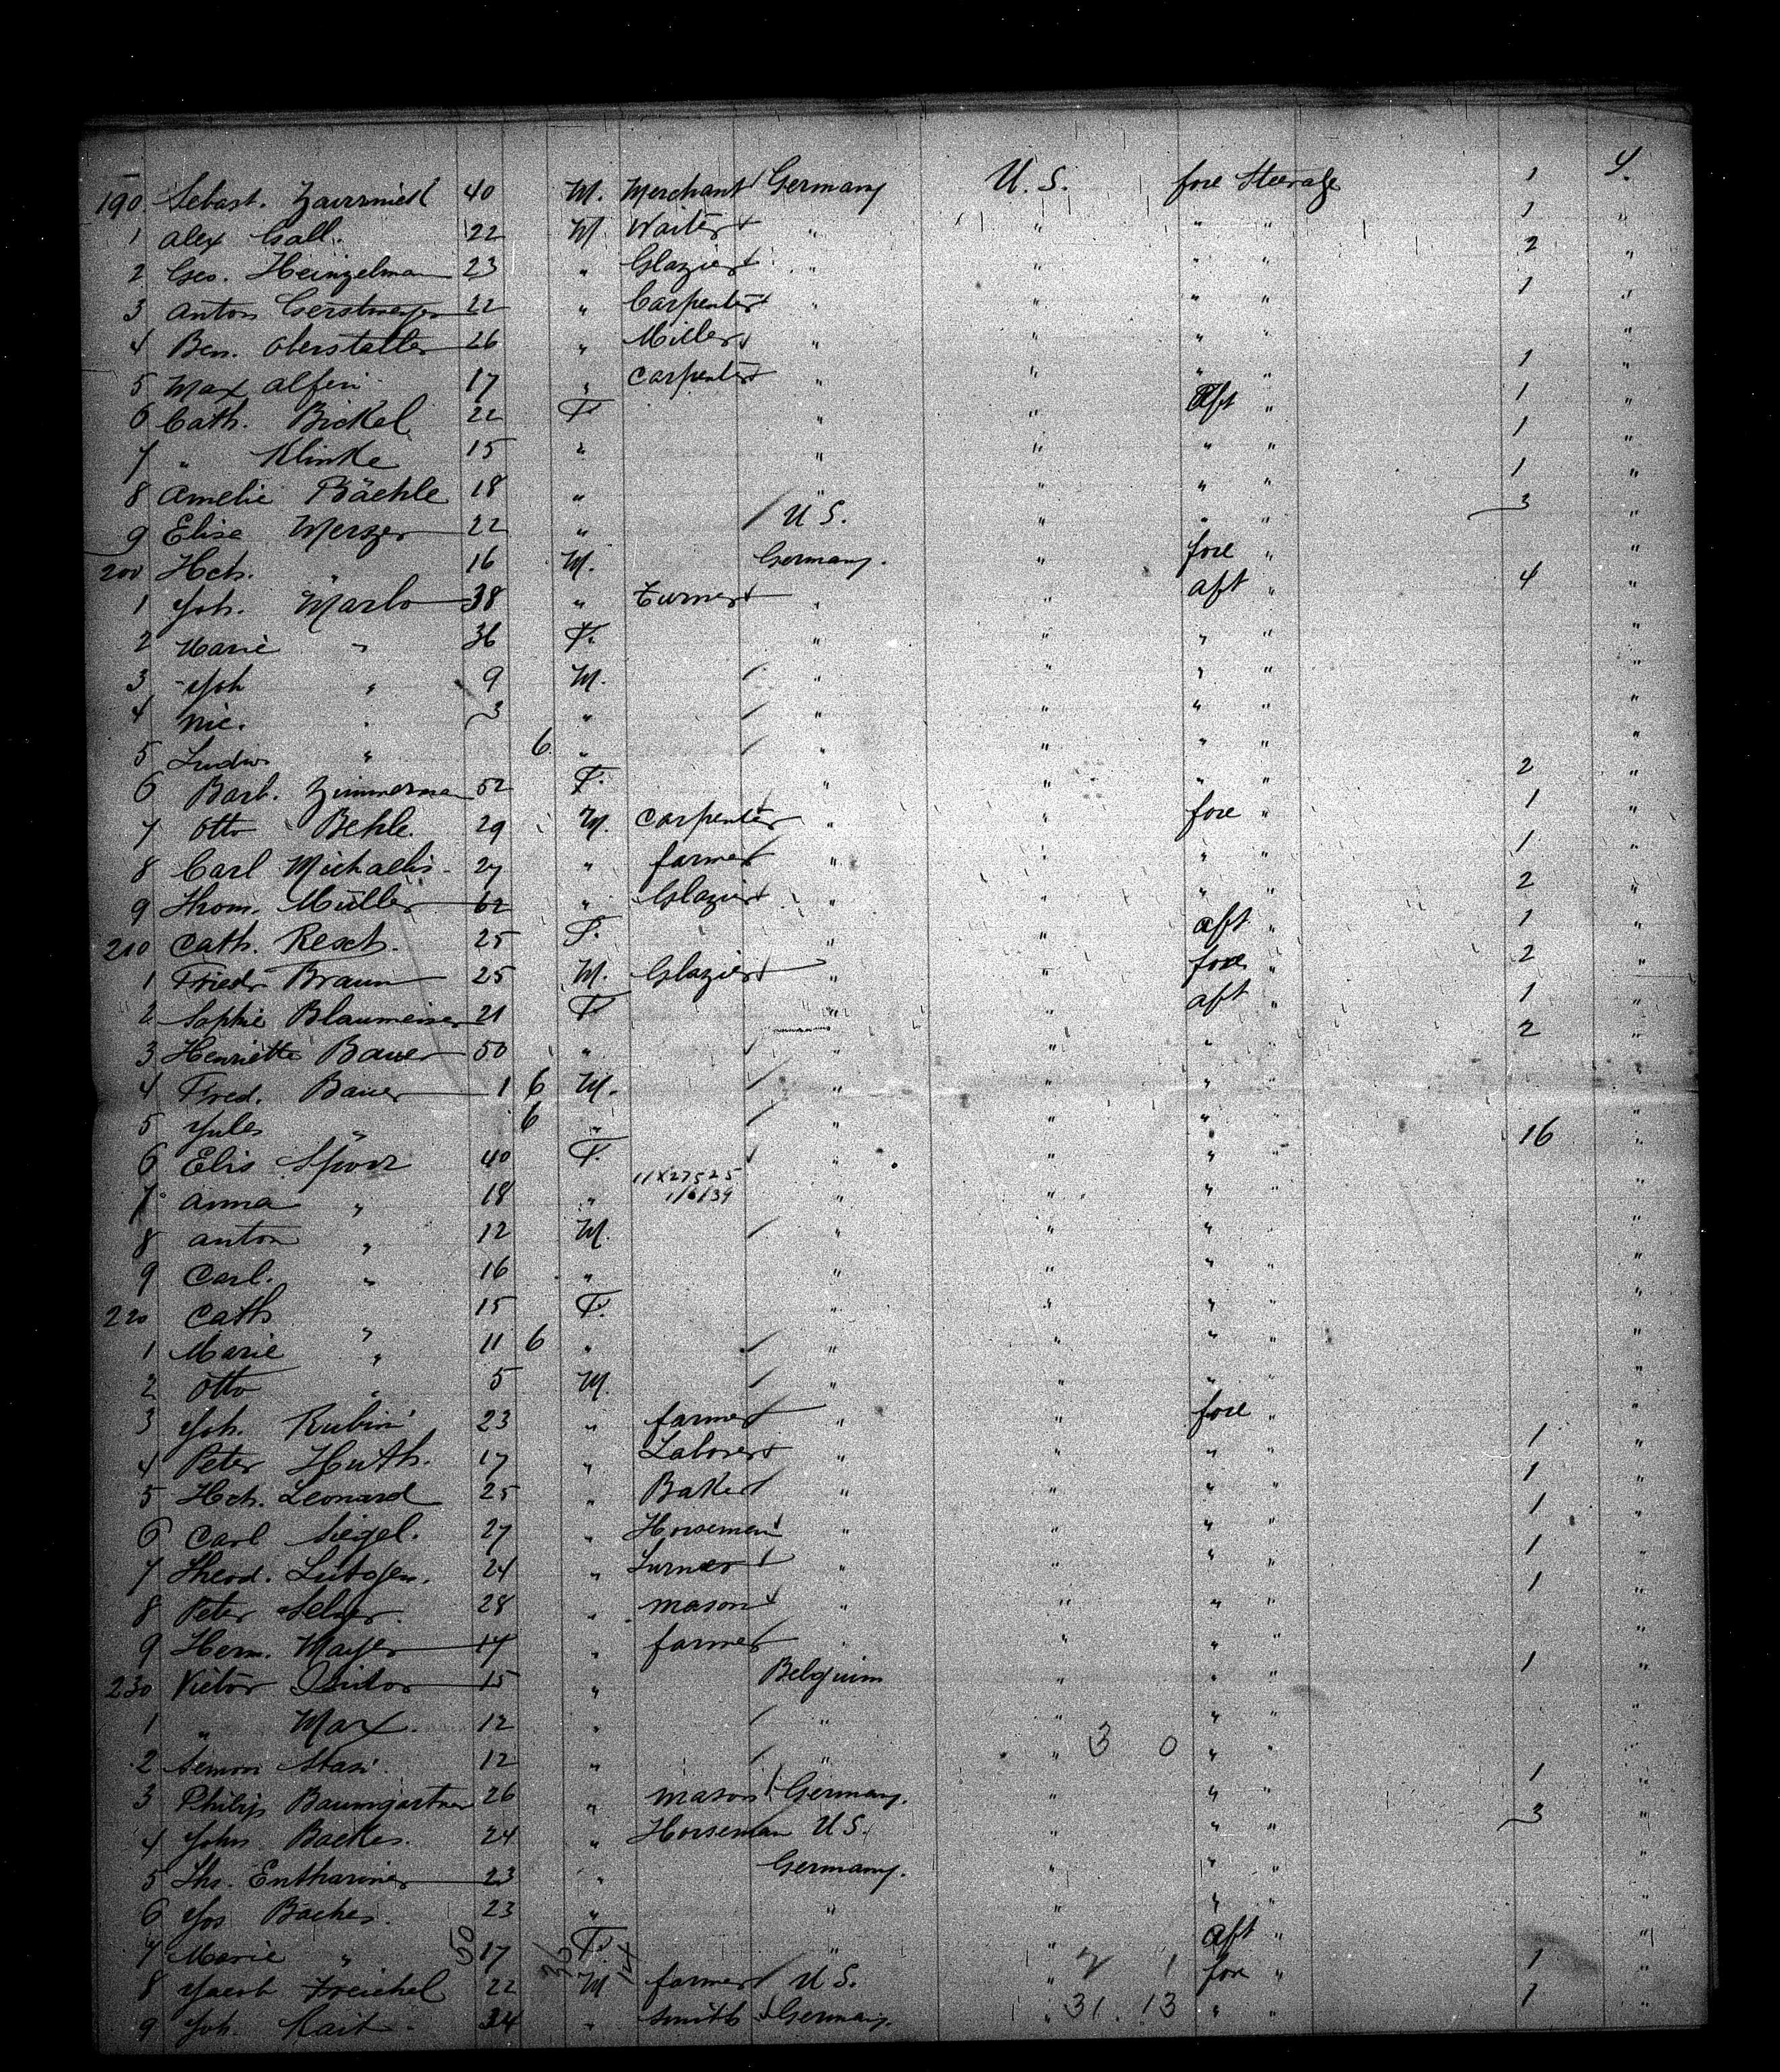 190 Sebast. 40 M. Merchant Germany U. S. fore Steerage 1 4.
1 Alex Gall. 22 M. Waiter " " " " 1 "
2 Geo. Heinzelman 23 " Glazier " " " " 2 "
3 Anton Gerstmeyer 22 " Carpenter " " " " 1 "
4 Ben. Oberstaller 26 " Miller " " " " "
5 Max Alferi 17 " Carpenter " " " " 1 "
6 Cath. Bickel 22 F. " " Aft " 1 "
7 " Klinke 15 " " " " " 1 "
8 Amelie Bäehle 18 " " " " " 1 "
9 Elise Merger 22 " U S. " " " 3 "
200 Hch. " 16 M. Germany. " fore " "
1 Joh. Marlo 38 " Turner " " aft " 4 "
2 Marie " 36 F. " " " " "
3 Joh " 9 M. " " " " "
4 Nic. " 3 " " " " " "
5 Ludw " 6 " " " " " "
6 Barb. Zimmerman 52 F. " " " " 2 "
7 Otto Behle. 29 M. Carpenter " " fore " 1 "
8 Carl Michaelis 27 " farmer " " " " 1 "
9 Thom. Müller 62 " Glazier " " " " 2 "
210 Cath. Resch. 25 F. " " aft " 1 "
1 Friedr Braun 25 M. Glazier " " fore " 2 "
2 Sophie Blaumeiser 21 F " " aft " 1 "
3 Henriette Bauer 50 " " " " " 2 "
4 Fred. Bauer 1 6 M. " " " " "
5 Jules " 6 " " " " " "
6 Elis Sporr 40 F. " " " " 16 "
7 Anna " 18 " 11X27525 1/6/39 " " " " "
8 Anton " 12 M. " " " " "
9 Carl. " 16 " " " " " "
220 Cath " 15 F. " " " " "
1 Marie " 11 6 " " " " " "
2 Otto " 5 M. " " " " "
3 Joh. Rubini 23 " farmer " " fore " "
4 Peter Huth. 17 " Laborer " " " " 1 "
5 Hch. Leonard 25 " Baker " " " " 1 "
6 Carl Siegel. 27 " Horsemen " " " " 1 "
7 Theod. 24 " Turner " " " " 1 "
8 Peter Selzer 28 " mason " " " " 1 "
9 Herm. Mayer 17 " farmer " " " " "
230 Victor Isidor 15 " Belguim " " " 1 "
1 " Max. 12 " " " " " "
2 Simon Stasi 12 " " " 3 0 " " "
3 Philip Baumgartner 26 " mason Germany. " " " 1 "
4 John Backes. 24 " Horseman U S. " " " 3 "
5 Ths. 23 " Germany. " " " "
6 Jos Backes. 23 " " " " " "
7 Marie " 50 17 F. 36 14 " " aft " "
8 Jacob Freichel 22 M farmer U S. " 2 1 fore " 1 "
9 Joh. Kait. 24 " smith Germany. " 31. 13 " " 1 "